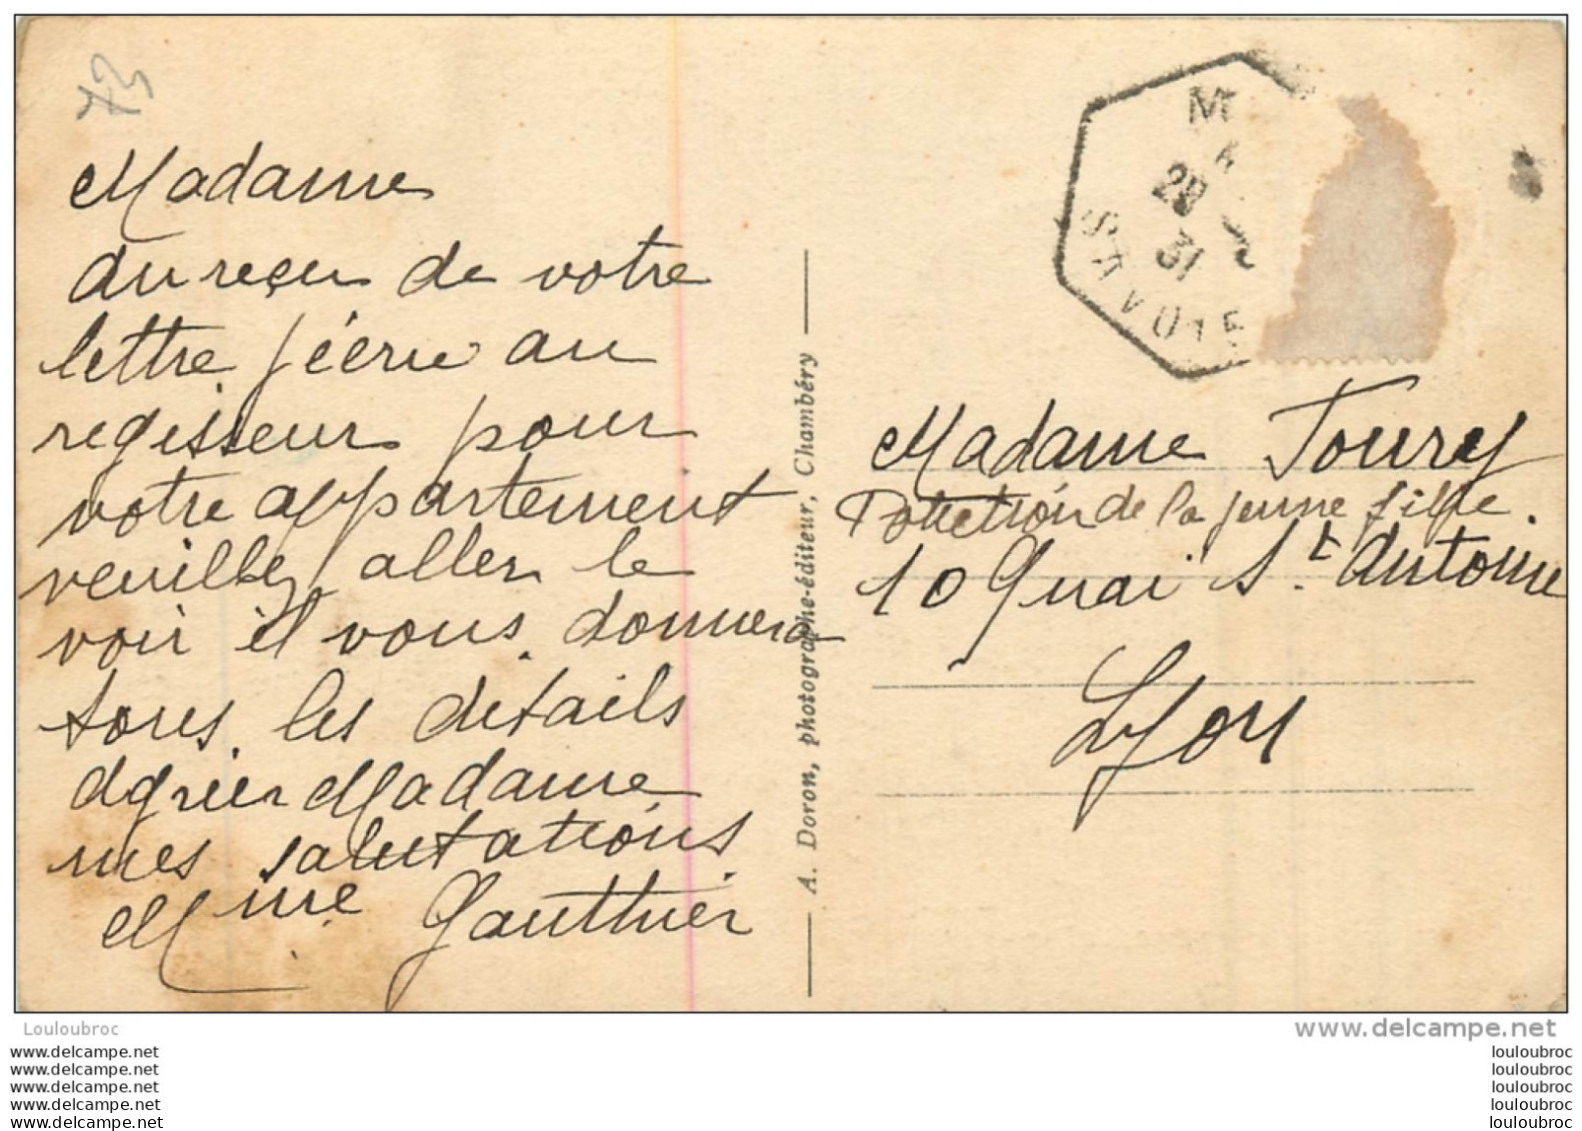 73
Madame
du reçu de votre
lettre j'écrie au
regisseur pour
votre appartement
veuillez aller le
voir il vous donnera
tous les détails
Agrier Madame
mes salutations
Mme Gauthier
A. Doron, photographe-éditeur, Chambéry
M
28
31
SAVOIE
Madame Toury
Protection de la jeune fille.
10 Quai St. Antoine
Lyon
Louloubroc
www.delcampe.net
www.delcampe.net
www.delcampe.net
www.delcampe.net
www.delcampe.net
www.delcampe.net
louloubroc
louloubroc
louloubroc
louloubroc
louloubroc